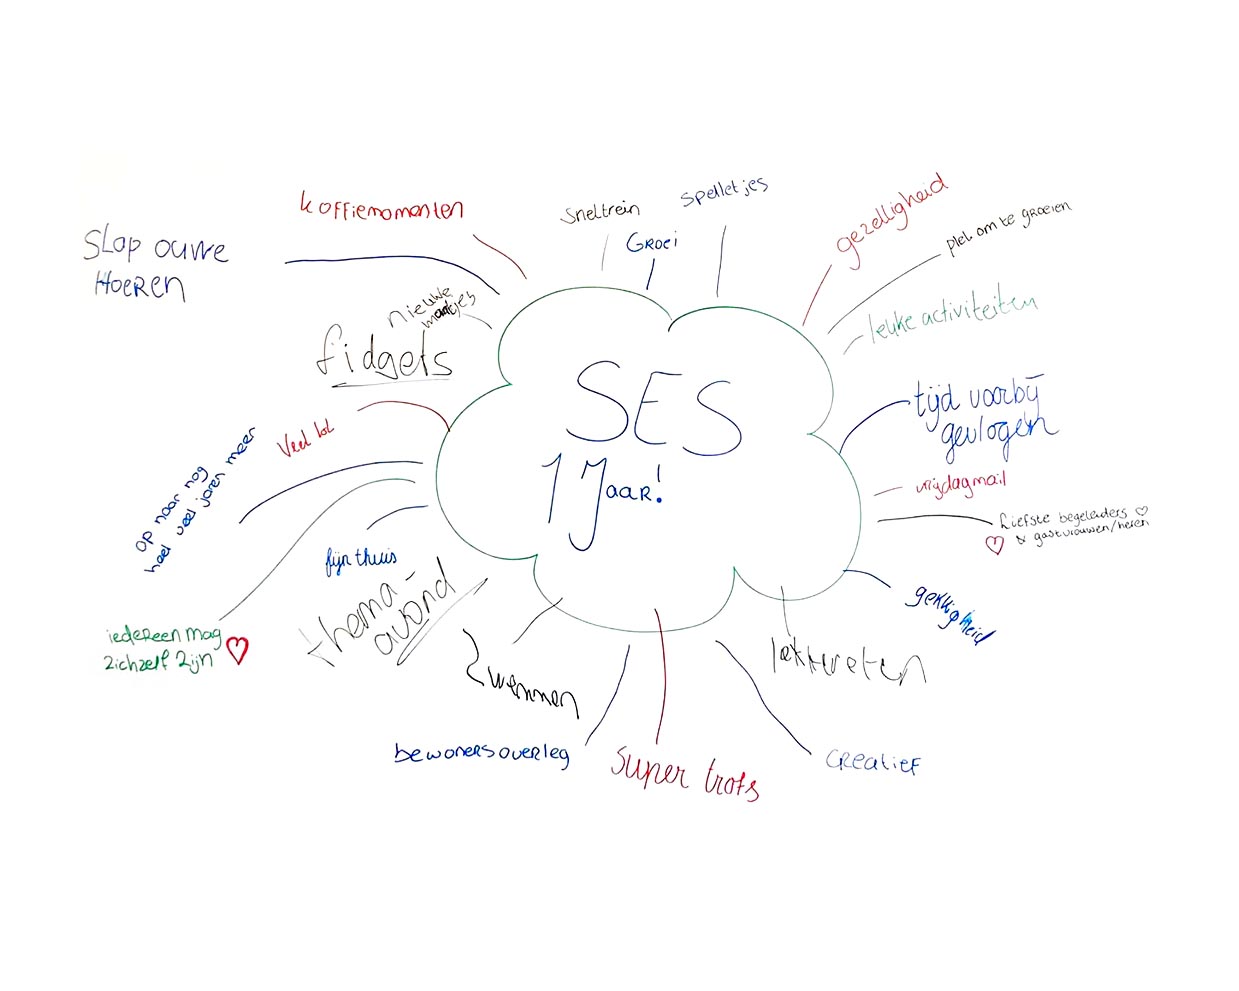 koffiemomenten
Sneltrein
Spelletjes
Groei
gezelligheid
plek om te groeien
Slap ouwe
Hoeren
nieuwe
leuke activiteiten
fidgets
SES
1 Jaar!
tijd voorbij
gevlogen
Veel lol
vrijdagmail
Liefste begeleiders ♡
& gastvrouwen/heren
op naar nog
heel veel jaren meer
fijn thuis
gekkigheid
thema-
avond
iedereen mag
zichzelf zijn
Zwemmen
bewonersoverleg
Super trots
creatief